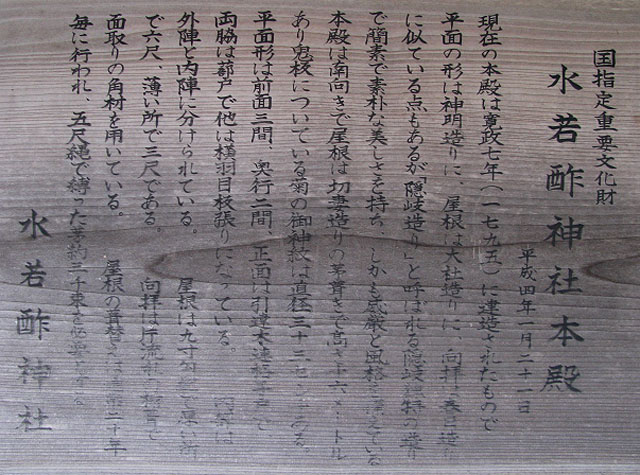 国指定重要文化財
水若酢神社本殿
平成四年一月二十一日
現在の本殿は寛政七年(一七九五)に建造されたもので
平面の形は神明造りに、屋根は大社造りに、向拝は春日造り
に似ている点もあるが「隠岐造り」と呼ばれる隠岐独特の造り
で簡素で素朴な美しさを持ち、しかも威厳と風格を備えている
本殿は南向きで屋根は切妻造りの茅葺きで高さ十六メートル
あり鬼板についている菊の御神紋は直径三十三センチある。
平面形は前面三間、奥行二間、正面は引違木連格子戸で、
両脇は蔀戸で他は横羽目板張りになっている。 内部は
外陣と内陣に分けられている。 屋根は九寸勾配で厚い所
で六尺、薄い所で三尺である。 向拝は片流れ
面取りの角材を用いている。 屋根の葺替えは二十年
毎に行われ、五尺縄で縛った茅約三千束を必要とする
水若酢神社